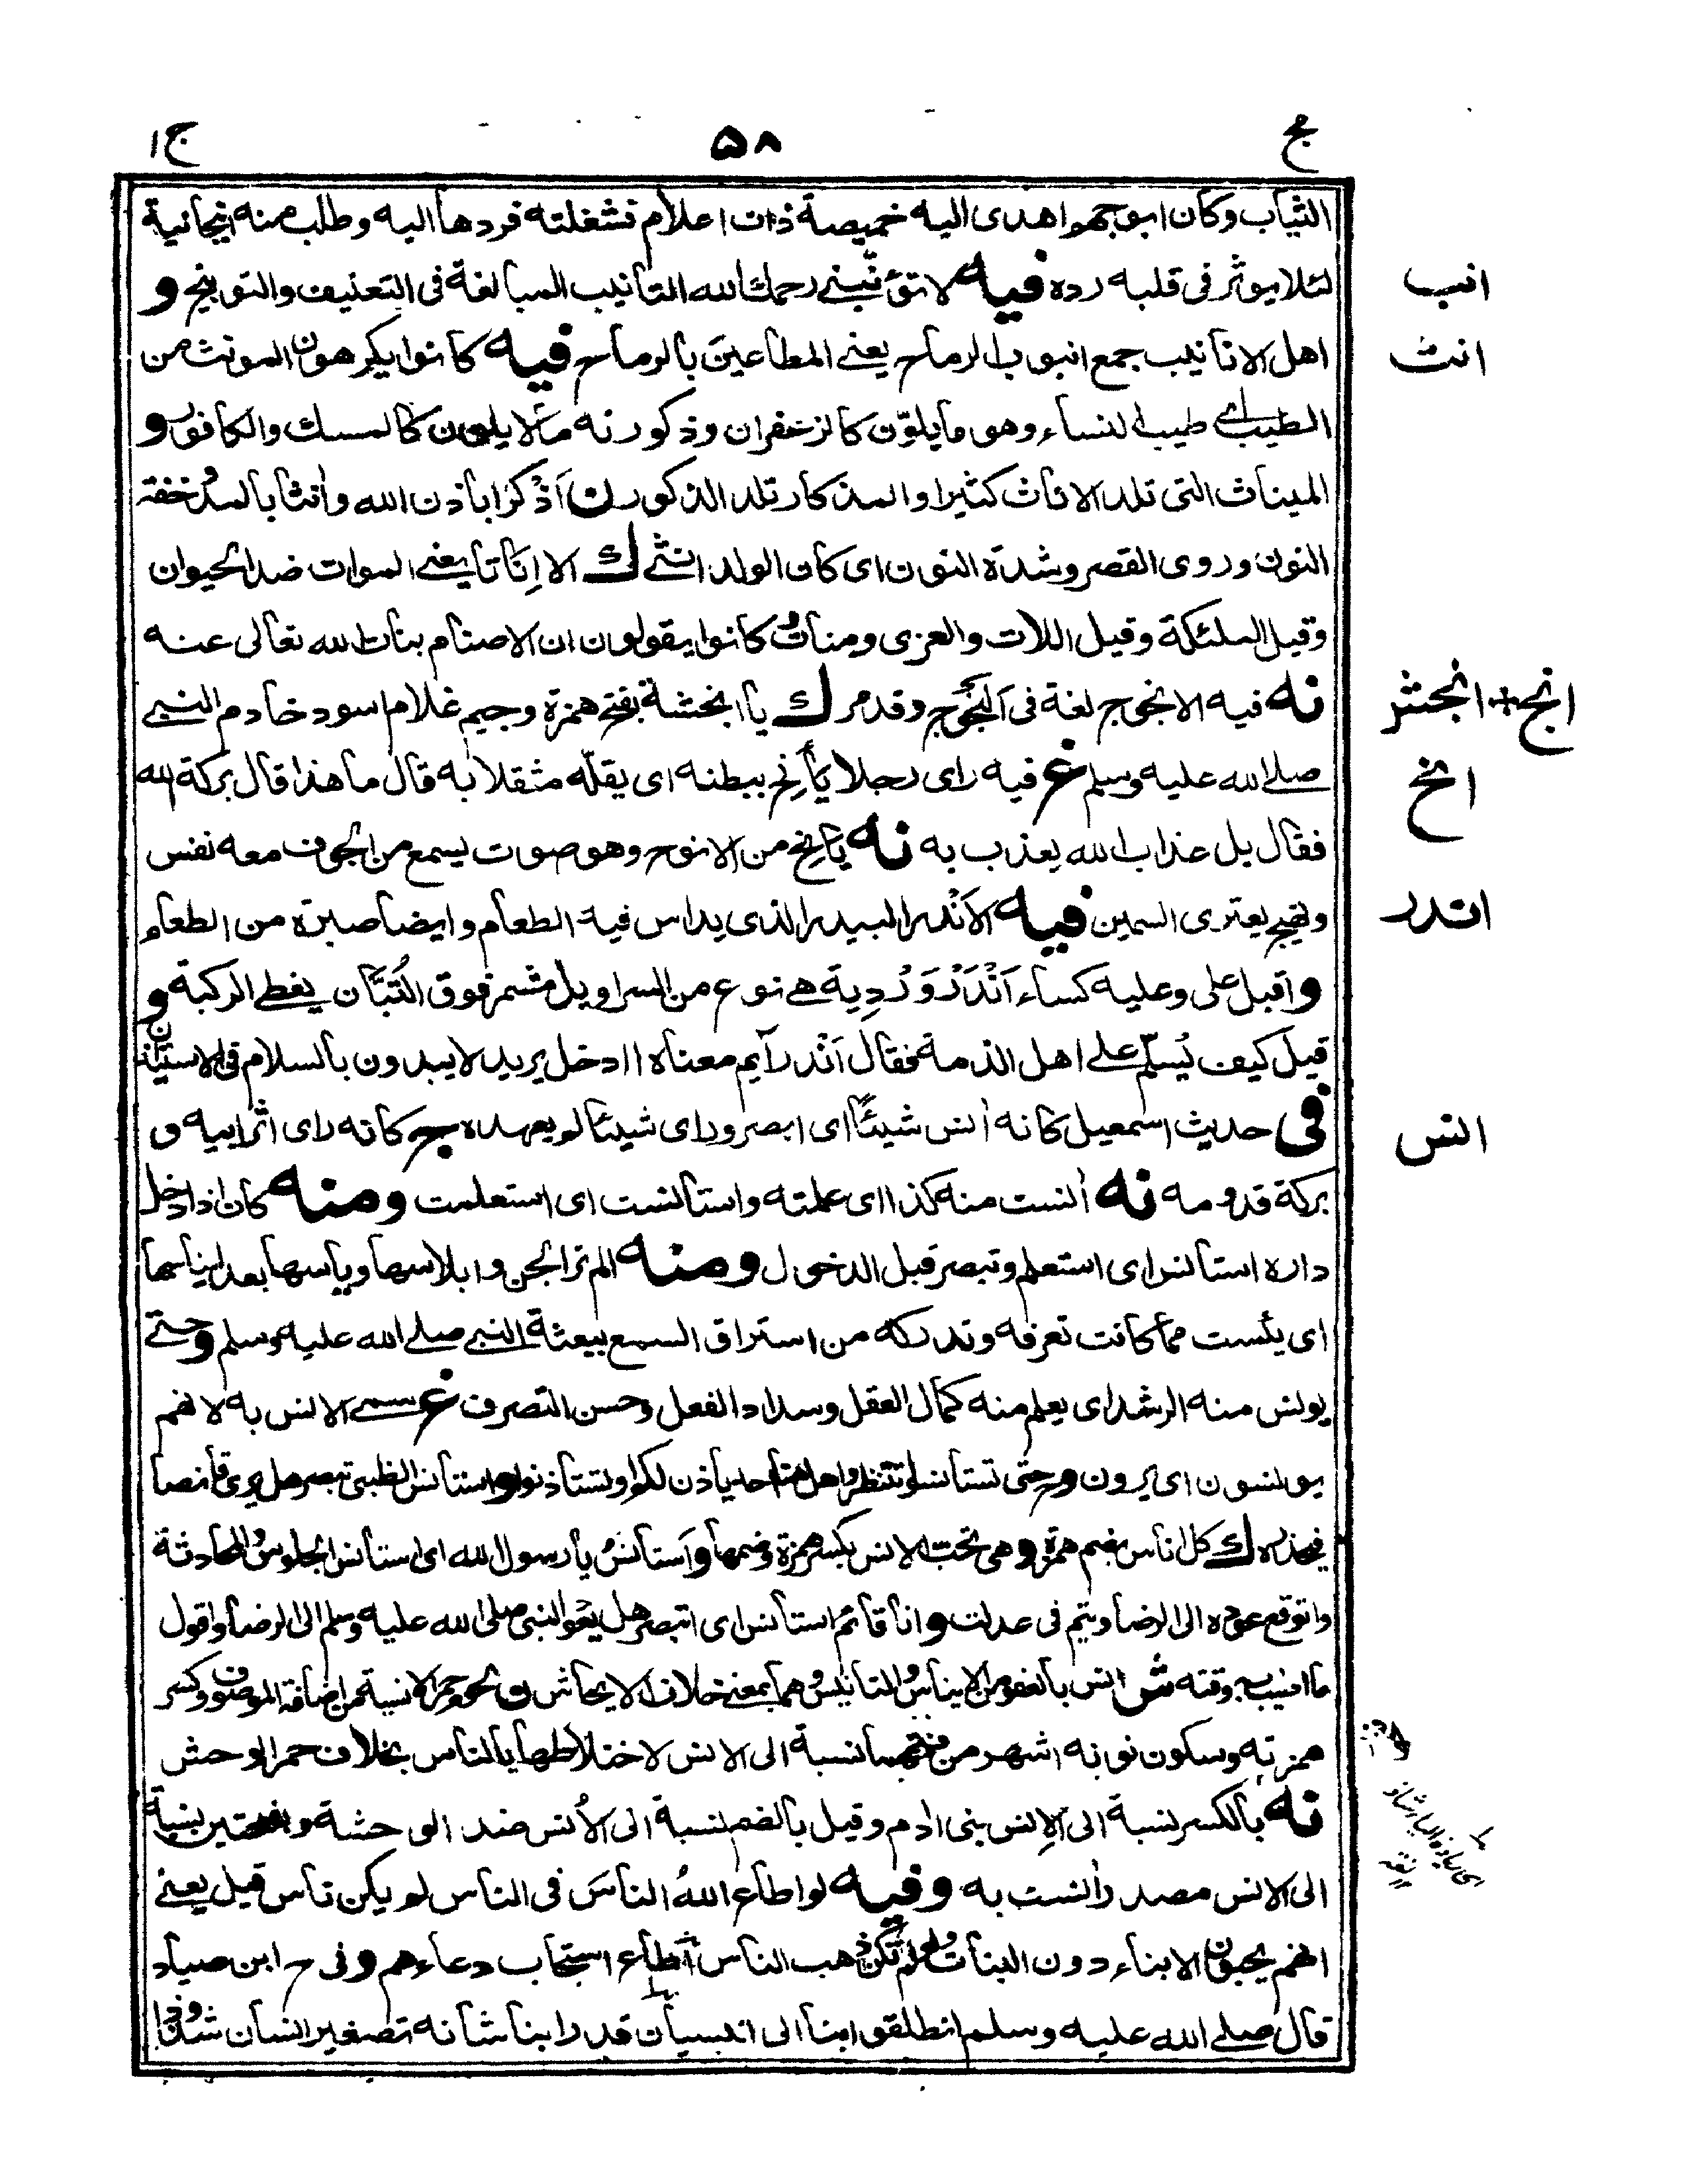 مج ٥٨ ج ١
الثياب وكان ابو جهم اهدى اليه خميصة ذات اعلام فشغلته فردها اليه وطلب منه انبجانية
لئلا يوثر فى قلبه رده فيه لا تؤنّبنى رحمك الله التانيب المبالغة فى التعنيف والتوبيخ و
انب
اهل الانانيب جمع انبوب الرماح يعنى المطاعين بالرماح فيه كانوا يكرهون المونث من
انث
الطيب طيب النساء وهو ما يلوّن كالزعفران وذكورته ما لا يلون كالمسك والكافور و
الميناث التى تلد الاناث كثيرا والمذكار تلد الذكور ن اَذْكرا باذن الله وانثا بالمد خفة
النون وروى القصر وشدة النون اى كان الولد انثى ك الا اِنَاثا يعنى الموات ضد الحيوان
وقيل الملئكة وقيل اللات والعزى ومنات كانوا يقولون ان الاصنام بنات الله تعالى عنه
نه فيه الانجوج لغة فى اَلَنْجُوج وقد مر ك يا انجشة بفتح همزة وجيم غلام اسود خادم النبى
انج + انجش
صلى الله عليه وسلم غ فيه راى رجلا يَأْنِح ببطنه اى يقلّه مثقلا به قال ما هذا قال بركة الله
انح
فقال بل عذاب الله يعذب به نه يَانِح من الانوح وهو صوت يسمع من الجوف معه نفس
وبهيج يعترى السمين فيه الاَنْدر البيدر الذى يداس فيه الطعام وايضا صبرة من الطعام
اندر
و اقبل على وعليه كساء اَنْدَرْوَرْدِية هى نوع من السراويل مشمر فوق التُبَّان يغطى الركبة و
قيل كيف يُسلّم على اهل الذمة فقال اَنْدرآيم معناه اادخل يريد لا يبدون بالسلام فى الاستيذان
فى حديث اسمعيل كانه اٰنس شيئًا اى ابصر وراى شيئا لم يعهده ج كانه راى اثر ابيه و
انس
بركة قدومه نه اٰنست منه كذا اى علمته واستانست اى استعلمت ومنه كان اذا دخل
داره استانس اى استعلم وتبصر قبل الدخول ومنه الم تر الجن وابلاسها وياسها بعد ايناسها
اى يئست مما كانت تعرفه وتدركه من استراق السمع ببعثة النبى صلى الله عليه وسلم وحتى
يونس منه الرشد اى يعلم منه كمال العقل وسداد الفعل وحسن التصرف غ سمى الانس به لانهم
يونسون اى يرون وحتى تستانسوا تنظروا هل هنا احد ياذن لكم او تستاذنوا واستانس الظبى تبصر هل يرى قانصا
فيحذره ك كل اناس بضم همزة وهى تحت الانس بكسر همزة وضمها و اَستانسُ يا رسول الله اى استانس الجلوس المحادثة
واتوقع عوده الى الرضا ويتم فى عدلت و انا قائم استانس اى اتبصر هل يعود النبى صلى الله عليه وسلم الى الرضا واقول
ما اطيب به وقته ش انس بالعفو من الايناس والتانيس وهما بمعنى خلاف الايحاش ن لحوم حمر الانسية من اضافة الموصوف وكسر
همزته وسكون نونه اشهر من فتحهما نسبة الى الانس لاختلاطها بالناس بخلاف حمر الوحش
نه بالكسر نسبة الى الاِنس بنى ادم وقيل بالضم نسبة الى الاُنس ضد الوحشة و بفتحتين نسبة
الى الانس مصدر اٰنست به وفيه لو اطاع اللهُ الناسَ فى الناس لم يكن ناس قيل يعنى
انهم يحبون الابناء دون البنات ولو لم تكن ذهب الناس اطاع استجاب دعاءهم وفى ح ابن صياد
قال صلى الله عليه وسلم انطلقوا بنا الى انيسيان قد رابنا شانه تصغير انسان شذوذا